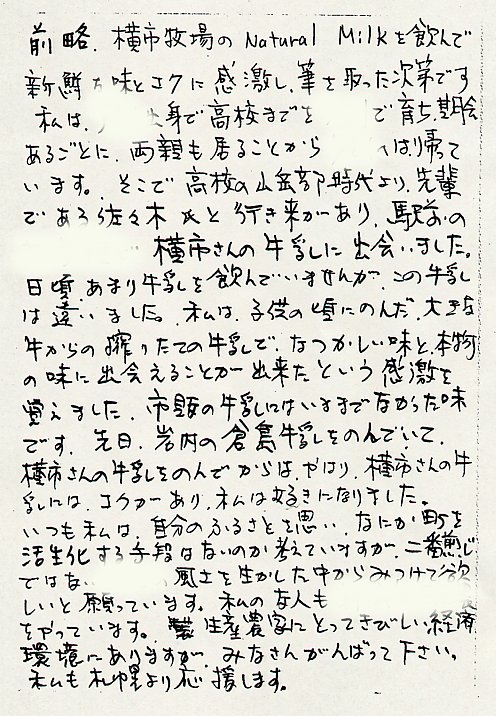 前略、横市牧場のNatural Milkを飲んで
新鮮な味とコクに感激し、筆を取った次第です
私は、身で高校までを で育ち、機会
あるごとに、両親も居ることから はり帰って
います。そこで高校の山岳部時代より、先輩
である佐々木氏と行き来があり、駅前の
横市さんの牛乳に出会いました。
日頃、あまり牛乳を飲んでいませんが、この牛乳
は違いました。私は、子供の頃にのんだ、大きな
牛からの搾りたての牛乳で、なつかしい味と、本物
の味に出会えることが出来たという感激を
覚えました。市販の牛乳にはいままでなかった味
です。先日、岩内の倉島牛乳をのんでいて、
横市さんの牛乳をのんでからは、やはり、横市さんの牛
乳には、コクがあり、私は好きになりました。
いつも私は、自分のふるさとを思い、なにか町を
活生化する手段はないのか考えていますが、二番煎じ
ではな 風土を生かした中からみつけて欲
しいと願っています。私の友人も
をやっています。生産農家にとってきびしい経済
環境にありますが、みなさんがんばって下さい。
私も札幌より応援します。